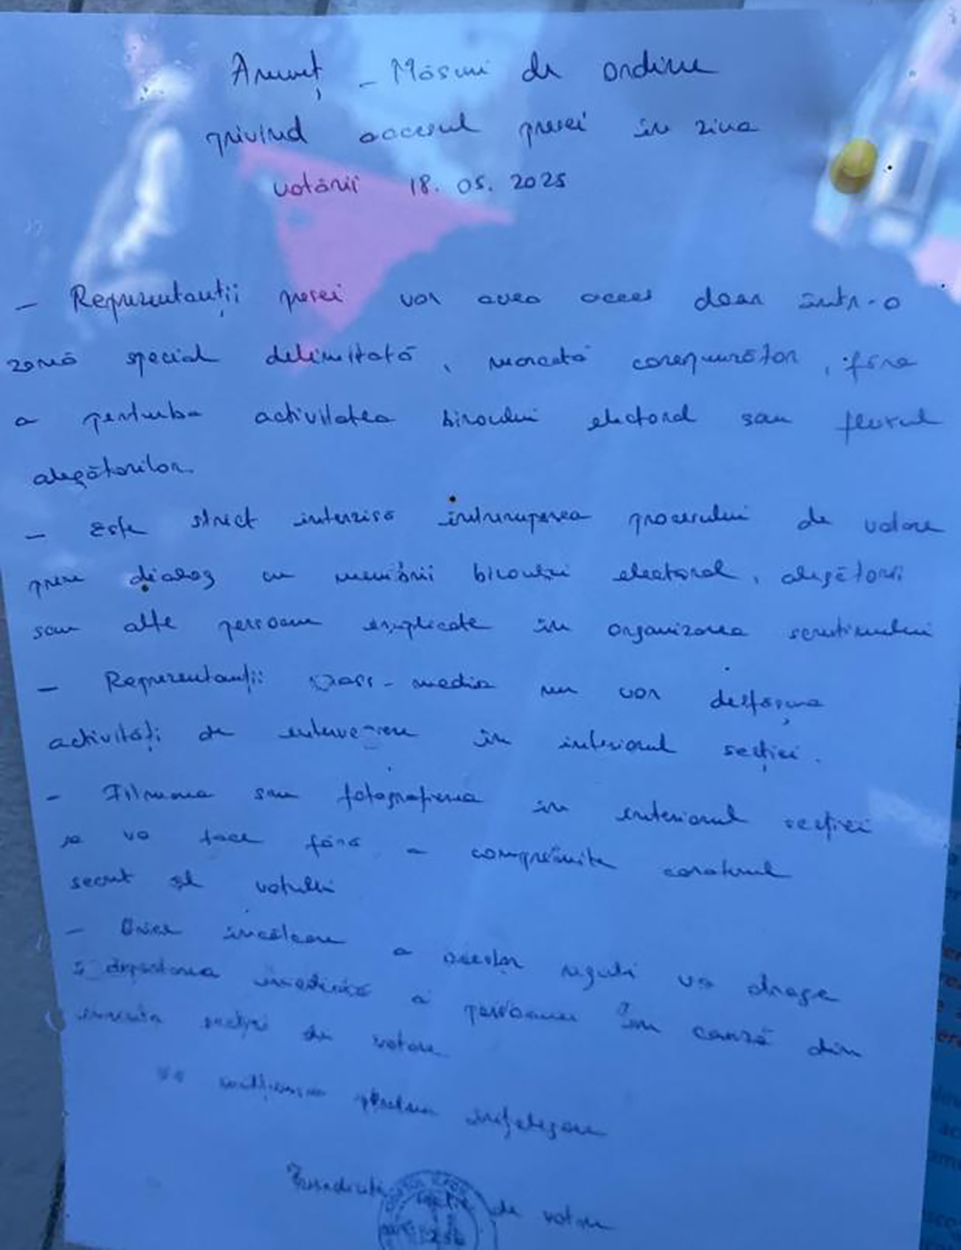 Anunț - Măsuri de ordine
privind accesul presei în ziua
votării 18. 05. 2025
- Reprezentanții presei vor avea acces doar într-o
zonă special delimitată, marcată corespunzător, fără
a perturba activitatea biroului electoral sau fluxul
alegătorilor.
- Este strict interzisă întreruperea procesului de votare
prin dialog cu membrii biroului electoral, alegătorii
sau alte persoane implicate în organizarea scrutinului
- Reprezentanții mass-media nu vor desfășura
activități de intervievare în interiorul secției.
- Filmarea sau fotografierea în interiorul secției
se va face fără a compromite caracterul
secret al votului
- Orice încălcare a acestor reguli va atrage
îndepărtarea imediată a persoanei în cauză din
incinta secției de votare
Vă mulțumim pentru înțelegere
Președinte secție de votare